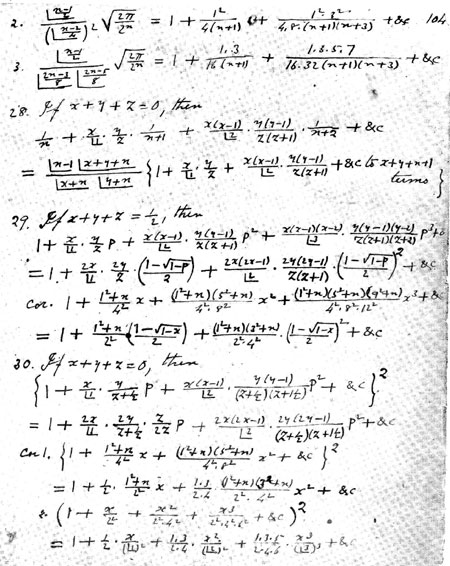 2. |n-1 / (|(n-2)/2)² √(2π/2n) = 1 + 1²/4(n+1) + 1²·3²/4.8.(n+1)(n+3) + &c 104
3. √(2π/2n) = 1 + 1.3/16(n+1) + 1.3.5.7/16.32(n+1)(n+3) + &c
28. If x+y+z=0, then
1/n + x/|1 · y/z · 1/(n+1) + x(x-1)/|2 · y(y-1)/z(z+1) · 1/(n+2) + &c
= |n-1 |x+y+n / |x+n |y+n {1 + x/|1 · y/z + x(x-1)/|2 · y(y-1)/z(z+1) + &c to x+y+n+1 terms}
29. If x+y+z=½, then
1 + x/|1 · y/z p + x(x-1)/|2 · y(y-1)/z(z+1) p² + x(x-1)(x-2)/|3 · y(y-1)(y-2)/z(z+1)(z+2) p³ + &
= 1 + 2x/|1 · 2y/z · (1-√(1-p))/2 + 2x(2x-1)/|2 · 2y(2y-1)/z(z+1) · ((1-√(1-p))/2)² + &c
Cor. 1 + (1²+n)/4² x + (1²+n)(5²+n)/4²·8² x² + (1²+n)(5²+n)(9²+n)/4²·8²·12² x³ + &
= 1 + (1²+n)/2² (1-√(1-x))/2 + (1²+n)(3²+n)/2²·4² · ((1-√(1-x))/2)² + &c
30. If x+y+z=0, then
{1 + x/|1 · y/(z+½) p + x(x-1)/|2 · y(y-1)/(z+½)(z+1½) p² + &c}²
= 1 + 2x/|1 · 2y/(z+½) · z/2z p + 2x(2x-1)/|2 · 2y(2y-1)/(z+½)(z+1½) p² + &c
Cor 1. {1 + (1²+n)/4² x + (1²+n)(5²+n)/4²8² x² + &c}²
= 1 + ½ · (1²+n)/2² x + 1.3/2.4 · (1²+n)(3²+n)/2²·4² x² + &c
2 (1 + x/2² + x²/2²·4² + x³/2²·4²·6² + &c)²
= 1 + ½ · x/(|1)² + 1.3/2.4 · x²/(|2)² + 1.3.5/2.4.6 · x³/(|3)³ + &c